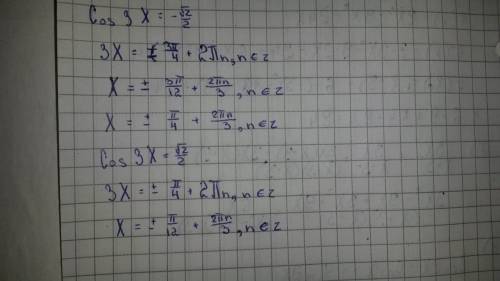 Cos 3X = -√2/2
3X = ± 3π/4 + 2πn, n∈z
X = ± 3π/12 + 2πn/3, n∈z
X = ± π/4 + 2πn/3, n∈z
Cos 3X = √2/2
3X = ± π/4 + 2πn, n∈z
X = ± π/12 + 2πn/3, n∈z